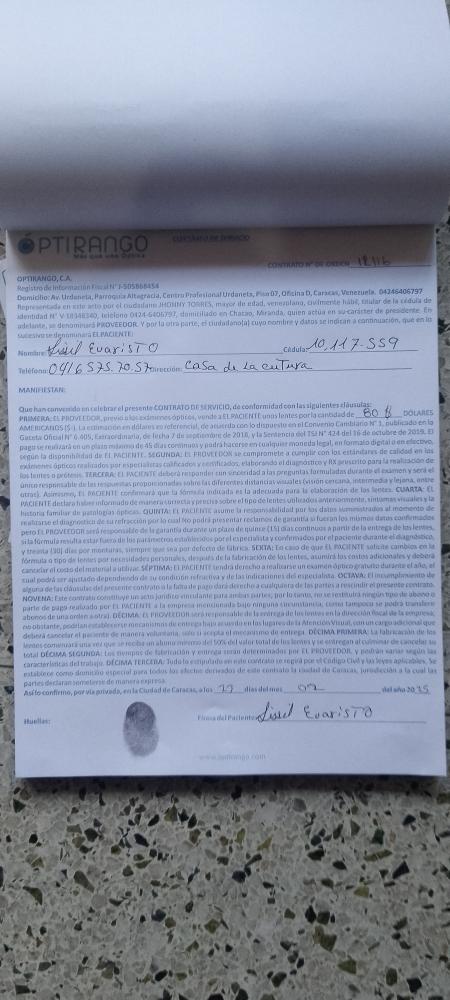 ÓPTIRANGO
Más que una Óptica
CONTRATO DE SERVICIO
CONTRATO N° DE ORDEN
OPTIRANGO, C.A.
Registro de Información Fiscal N° J-505868454
Domicilio: Av. Urdaneta, Parroquia Altagracia, Centro Profesional Urdaneta, Piso 07, Oficina D, Caracas, Venezuela. 04246406797
Representada en este acto por el ciudadano JHONNY TORRES, mayor de edad, venezolano, civilmente hábil, titular de la cédula de
identidad N° V-18348340, teléfono 0424-6406797, domiciliado en Chacao, Miranda, quien actúa en su carácter de presidente. En
adelante, se denominará PROVEEDOR. Y por la otra parte, el ciudadano(a) cuyo nombre y datos se indican a continuación, que en lo
sucesivo se denominará EL PACIENTE:
Nombre: Evaristo Cédula: 10.117-559
Teléfono: 0416 575.70.57 Dirección: Casa de La cultura
MANIFIESTAN:
Que han convenido en celebrar el presente CONTRATO DE SERVICIO, de conformidad con las siguientes cláusulas:
PRIMERA: EL PROVEEDOR, previo a los exámenes ópticos, vende a EL PACIENTE unos lentes por la cantidad de 80 $ DÓLARES
AMERICANOS ($-). La estimación en dólares es referencial, de acuerdo con lo dispuesto en el Convenio Cambiario N° 1, publicado en la
Gaceta Oficial N° 6.405, Extraordinaria, de fecha 7 de septiembre de 2018, y la Sentencia del TSJ N° 424 del 16 de octubre de 2019. El
pago se realizará en un plazo máximo de 45 días continuos y podrá hacerse en cualquier moneda legal, en formato digital o en efectivo,
según la disponibilidad de EL PACIENTE. SEGUNDA: EL PROVEEDOR se compromete a cumplir con los estándares de calidad en los
exámenes ópticos realizados por especialistas calificados y certificados, elaborando el diagnóstico y RX prescrito para la realización de
los lentes o prótesis. TERCERA: EL PACIENTE deberá responder con sinceridad a las preguntas formuladas durante el examen y será el
único responsable de las respuestas proporcionadas sobre las diferentes distancias visuales (visión cercana, intermedia y lejana, entre
otras). Asimismo, EL PACIENTE confirmará que la fórmula indicada es la adecuada para la elaboración de los lentes. CUARTA: EL
PACIENTE declara haber informado de manera correcta y precisa sobre el tipo de lentes utilizados anteriormente, síntomas visuales y la
historia familiar de patologías ópticas. QUINTA: EL PACIENTE asume la responsabilidad por los datos suministrados al momento de
realizarse el diagnóstico de su refracción por lo cual No podrá presentar reclamos de garantía si fueran los mismos datos confirmados
pero EL PROVEEDOR será responsable de la garantía durante un plazo de quince (15) días continuos a partir de la entrega de los lentes,
si la fórmula resulta estar fuera de los parámetros establecidos por el especialista y confirmados por el paciente durante el diagnóstico,
y treinta (30) días por monturas, siempre que sea por defecto de fábrica. SEXTA: En caso de que EL PACIENTE solicite cambios en la
fórmula o tipo de lentes por necesidades personales, después de la fabricación de los lentes, asumirá los costos adicionales y deberá
cancelar el costo del material a utilizar. SÉPTIMA: EL PACIENTE tendrá derecho a realizarse un examen óptico gratuito durante el año, el
cual podrá ser ajustado dependiendo de su condición refractiva y de las indicaciones del especialista. OCTAVA: El incumplimiento de
alguna de las cláusulas del presente contrato o la falta de pago dará derecho a cualquiera de las partes a rescindir el presente contrato.
NOVENA: Este contrato constituye un acto jurídico vinculante para ambas partes; por lo tanto, no se restituirá ningún tipo de abono o
parte de pago realizado por EL PACIENTE a la empresa mencionada bajo ninguna circunstancia, como tampoco se podrá transferir
abonos de una orden a otra). DÉCIMA: EL PROVEEDOR será responsable de la entrega de los lentes en la dirección fiscal de la empresa;
no obstante, podrían establecerse mecanismos de entrega bajo acuerdo en los lugares de la Atención Visual, con un cargo adicional que
deberá cancelar el paciente de manera voluntaria, solo si acepta el mecanismo de entrega. DÉCIMA PRIMERA: La fabricación de los
lentes comenzará una vez que se reciba un abono mínimo del 50% del valor total de los lentes y se entregan al culminar de cancelar su
total DÉCIMA SEGUNDA: Los tiempos de fabricación y entrega serán determinados por EL PROVEEDOR, y podrán variar según las
características del trabajo. DÉCIMA TERCERA: Todo lo estipulado en este contrato se regirá por el Código Civil y las leyes aplicables. Se
establece como domicilio especial para todos los efectos derivados de este contrato la ciudad de Caracas, jurisdicción a la cual las
partes declaran someterse de manera expresa.
Así lo confirmo, por vía privada, en la Ciudad de Caracas, a los días del mes 02 del año 2025
Huellas: Firma del Paciente: Evaristo
www.optirango.com